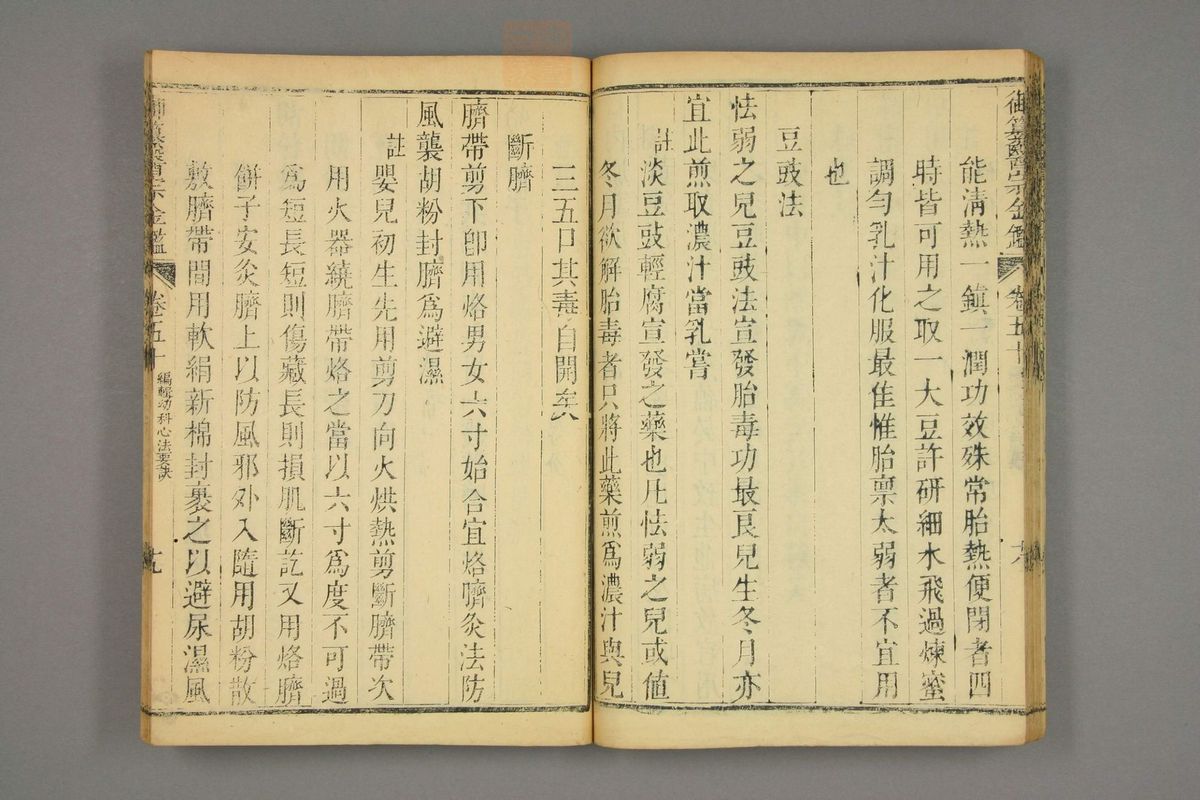 御纂醫宗金鑑 卷五十
能淸熱一鎮一潤功效殊常胎熱便閉者四
時皆可用之取一大豆許研細水飛過煉蜜
調勻乳汁化服最佳惟胎稟太弱者不宜用
也
豆豉法
怯弱之兒豆豉法宣發胎毒功最良兒生冬月亦
宜此煎取濃汁當乳嘗
註淡豆豉輕腐宣發之藥也凡怯弱之兒或值
冬月欲解胎毒者只將此藥煎爲濃汁與兒
三五口其毒自開矣
斷臍
臍帶剪下卽用烙男女六寸始合宜烙臍灸法防
風襲胡粉封臍爲避濕
註嬰兒初生先用剪刀向火烘熱剪斷臍帶次
用火器繞臍帶烙之當以六寸爲度不可過
爲短長短則傷藏長則損肌斷訖又用烙臍
餅子安灸臍上以防風邪外入隨用胡粉散
敷臍帶間用軟絹新棉封裹之以避尿濕風
御纂醫宗金鑑 卷五十 編輯幼科心法要訣 十九